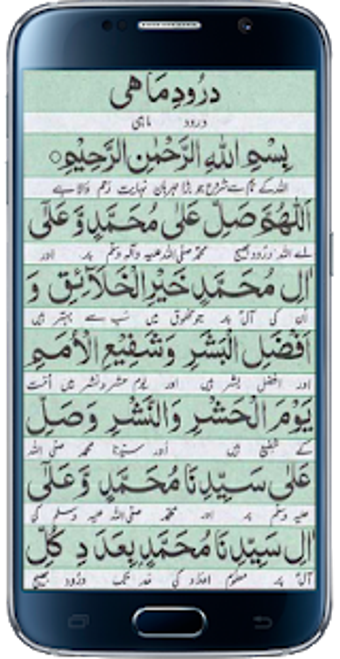 درود ماهی
درود ماہی
بِسْمِ اللهِ الرَّحْمٰنِ الرَّحِيْمِ
اللہ کے نام سے شروع جو بڑا مہربان نہایت رحم والا ہے
اَللّٰهُمَّ صَلِّ عَلٰى مُحَمَّدٍ وَّعَلٰى
اے اللہ درُود بھیج محمد صلی اللہ علیہ وآلہ وسلم پر اور
اٰلِ مُحَمَّدٍ خَيْرِ الْخَلَآئِقِ وَ
ان کی آل پر جو مخلوق میں سب سے بہتر ہیں
اَفْضَلِ الْبَشَرِ وَشَفِيْعِ الْاُمَمِ
اور افضل بشر ہیں اور یوم حشر و نشر میں اُمت
يَوْمَ الْحَشْرِ وَالنَّشْرِ وَصَلِّ
کے شفیع ہیں اور سیدنا محمد صلی اللہ
عَلٰى سَيِّدِنَا مُحَمَّدٍ وَّعَلٰى
علیہ وسلم پر اور محمد صلی اللہ علیہ وسلم کی
اٰلِ سَيِّدِنَا مُحَمَّدٍ بِعَدَدِ كُلِّ
آل پر معلوم اعداد کی حد تک درُود بھیج